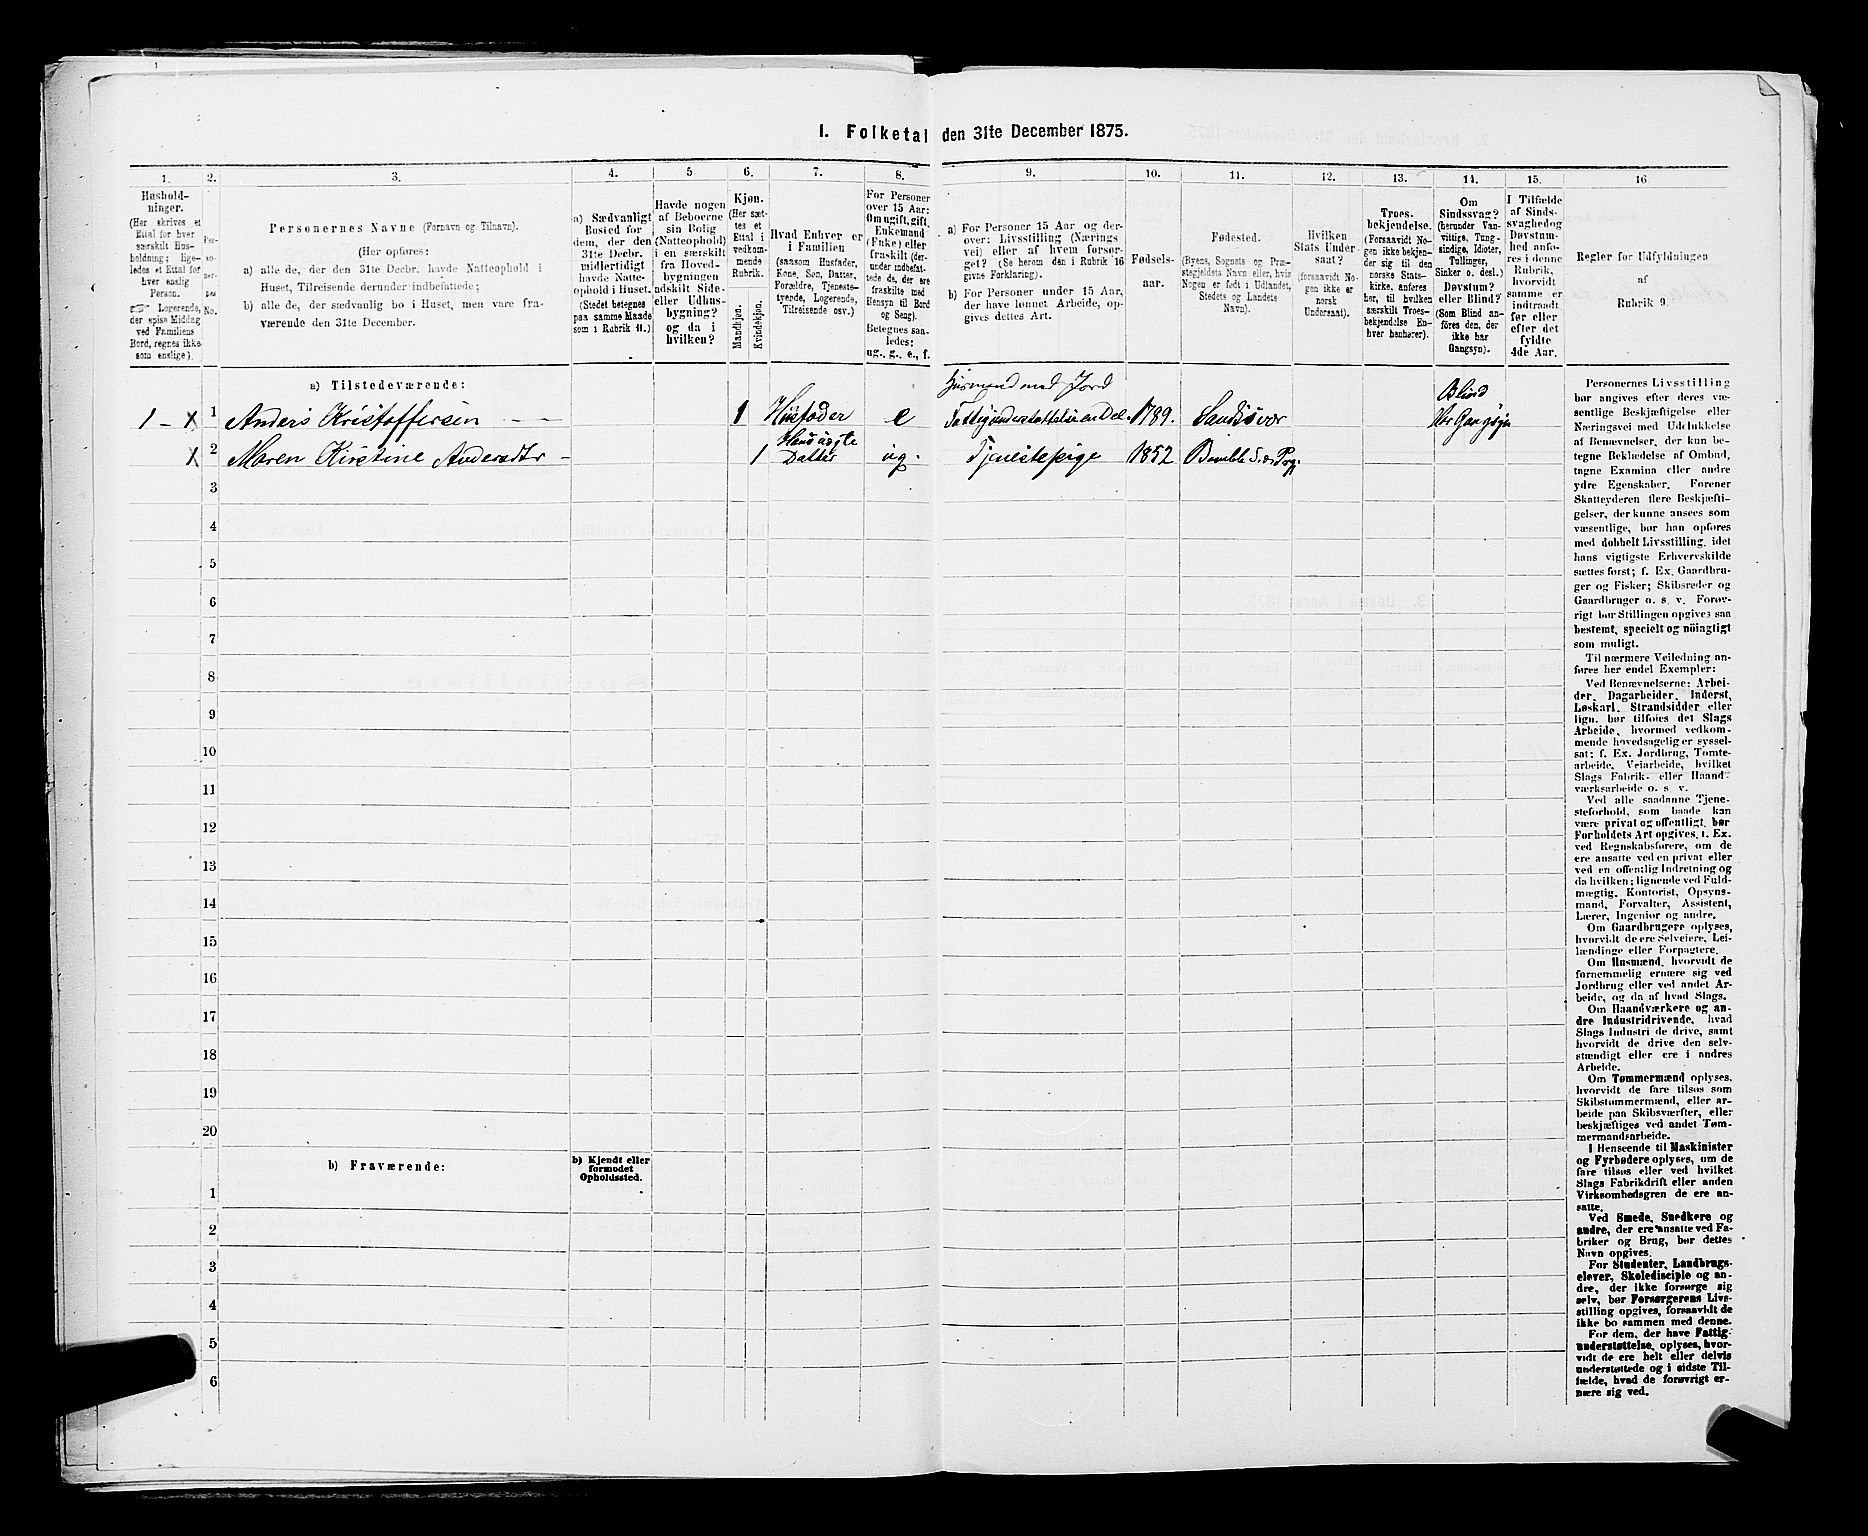 I. Folketal den 31te December 1875.
1. 2. 3. 4. 5. 6. 7. 8. 9. 10. 11. 12. 13. 14. 15. 16
Hushold-
ninger.
(Her skrives et
Ettal for hver
særskilt Hus-
holdning; lige-
ledes et Ettal for
hver enslig
Person.
Logerende,
der spise Middag
ved Familiens
Bord, regnes ikke
som enslige).
Personernes Navne (Fornavn og Tilnavn).
(Her opføres:
a) alle de, der den 31te Decbr. havde Natteophold i
Huset, Tilreisende derunder indbefattede;
b) alle de, der sædvanlig bo i Huset, men vare fra-
værende den 31te December.
a) Sædvanligt
Bosted for
dem, der den
31te Decbr.
midlertidigt
havde Natte-
ophold i Huset.
(Stedet betegnes
paa samme Maade
som i Rubrik 11.)
Havde nogen
af Beboerne
sin Bolig
(Natteophold)
i en særskilt
fra Hoved-
bygningen
adskilt Side-
eller Udhus-
bygning?
og da i
hvilken?
Kjøn.
(Her sæt-
tes et
Ettal i
vedkom-
mende
Rubrik.
Mandkjøn.
Kvindekjøn.
Hvad Enhver er
i Familien
(saasom Husfader,
Kone, Søn, Datter,
Forældre, Tjeneste-
tyende, Logerende,
Tilreisende osv.)
For Personer
over 15 Aar:
Om ugift, gift,
Enkemand
(Enke) eller
fraskilt (der-
under indbefat-
tede de, der ere
fraskilte med
Hensyn til Bord
og Seng).
Betegnes saa-
ledes:
ug., g., e., f.
a) For Personer 15 Aar og der-
over: Livsstilling (Nærings
vei) eller af hvem forsør-
get? (Se herom den i Rubrik 16
givne Forklaring).
b) For Personer under 15 Aar,
der have lønnet Arbeide, op-
gives dettes Art.
Fødsels-
aar.
Fødested.
(Byens, Sognets og Præ-
stegjeldets Navn eller, hvis
Nogen er født i Udlandet,
Stedets og Landets
Navn).
Hvilken
Stats Under
saat?
(forsaavidt No-
gen ikke er
norsk
Undersaat).
Troes-
bekjendelse.
(Forsaavidt No-
gen ikke bekjen-
der sig til den
norske Stats-
kirke, anføres
her, til hvilken
særskilt Troes-
bekjendelse En-
hver henhører).
Om
Sindssvag?
(herunder Van-
vittige, Tung-
sindige, Idioter,
Tullinger,
Sinker o. desl.)
Døvstum?
eller Blind?
(Som Blind an-
føres den, der
ikke har
Gangsyn).
I Tilfælde
af Sinds-
svaghed og
Døvstum-
hed anfø-
res i denne
Rubrik,
hvorvidt
samme er
indtraadt
før eller
efter det
fyldte
4de Aar.
Regler for Udfyldningen
af
Rubrik 9.
a) Tilstedeværende:
Husmand med Jord Blind
1 - X 1 Anders Kristoffersen 1 Husfader e Fattigunderstøttelse en Del. 1789. Sandsvær Har Gangsyn
Hans ugte
X 2 Maren Kirstine Andersdtr 1 Datter ug. Tjenestepige 1852 Bamble
3
4
5
6
7
8
9
10
11
12
13
14
15
16
17
18
19
20
b) Fraværende:
b) Kjendt eller
formodet
Opholdssted.
1
2
3
4
5
6
Personernes Livsstilling
bør angives efter deres væ-
sentlige Beskjæftigelse eller
Næringsvei med Udelukkelse
af Benævnelser, der kun be-
tegne Bekledelse af Ombud,
tagne Examina eller andre
ydre Egenskaber. Forener
Skatteyderen flere Beskjæfti-
gelser, der kunne ansees som
væsentlige, bør han opføres
med dobbelt Livsstilling, idet
hans vigtigste Erhvervskilde
sættes først; f. Ex. Gaardbru-
ger og Fisker; Skibsreder og
Gaardbruger o. s. v. Forøv-
rigt bør Stillingen opgives saa
bestemt, specielt og nöiagtigt
som muligt.
Til nærmere Veiledning an-
føres her endel Exempler:
Ved Benævnelserne: Arbei-
der, Dagarbeider, Inderst,
Løskarl, Strandsidder eller
lign. bør tilføies det Slags
Arbeide, hvormed vedkom-
mende hovedsagelig er syssel-
sat; f. Ex. Jordbrug, Tomte-
arbeide, Veiarbeide, hvilket
Slags Fabrik- eller Haand-
værksarbeide o. s. v.
Ved alle saadanne Tjene-
steforhold, som baade kan
være privat og offentligt, bør
Forholdets Art opgives, t. Ex.
ved Regnskabsførere, om de
ere ansatte ved en privat eller
ved en offentlig Indretning og
da hvilken; lignende ved Fuld-
mægtig, Kontorist, Opsyns-
mand, Forvalter, Assistent,
Lærer, Ingeniør og andre.
Om Gaardbrugere oplyses,
hvorvidt de ere Selveiere, Lei-
lændinge eller Forpagtere.
Om Husmænd, hvorvidt de
fornemmelig ernære sig ved
Jordbrug eller ved andet Ar-
beide, og da af hvad Slags.
Om Haandværkere og an-
dre Industridrivende, hvad
Slags Industri de drive, samt
hvorvidt de drive den selv-
stændigt eller ere i andres
Arbeide.
Om Tømmermænd oplyses,
hvorvidt de fare tilsøs som
Skibstømmermænd, eller ar-
beide paa Skibsværfter, eller
beskjæftiges ved andet Tøm-
mermandsarbeide.
I Henseende til Maskinister
og Fyrbødere oplyses, om de
fare tilsøs eller ved hvilket
Slags Fabrikdrift eller anden
Virksomhedsgren de ere an-
satte.
Ved Smede, Snedkere og
andre, der ere ansatte ved Fa-
briker og Brug, bør dettes
Navn opgives.
For Studenter, Landbrugs-
elever, Skoledisciple og an-
dre, der ikke forsørge sig
selv, bør Forsørgerens Livs-
stilling opgives, forsaavidt de
ikke bo sammen med denne.
For dem, der have Fattig-
understøttelse, oplyses, hvor-
vidt de ere helt eller delvis
understøttede og i sidste Til-
fælde, hvad de forøvrigt er-
nære sig ved.